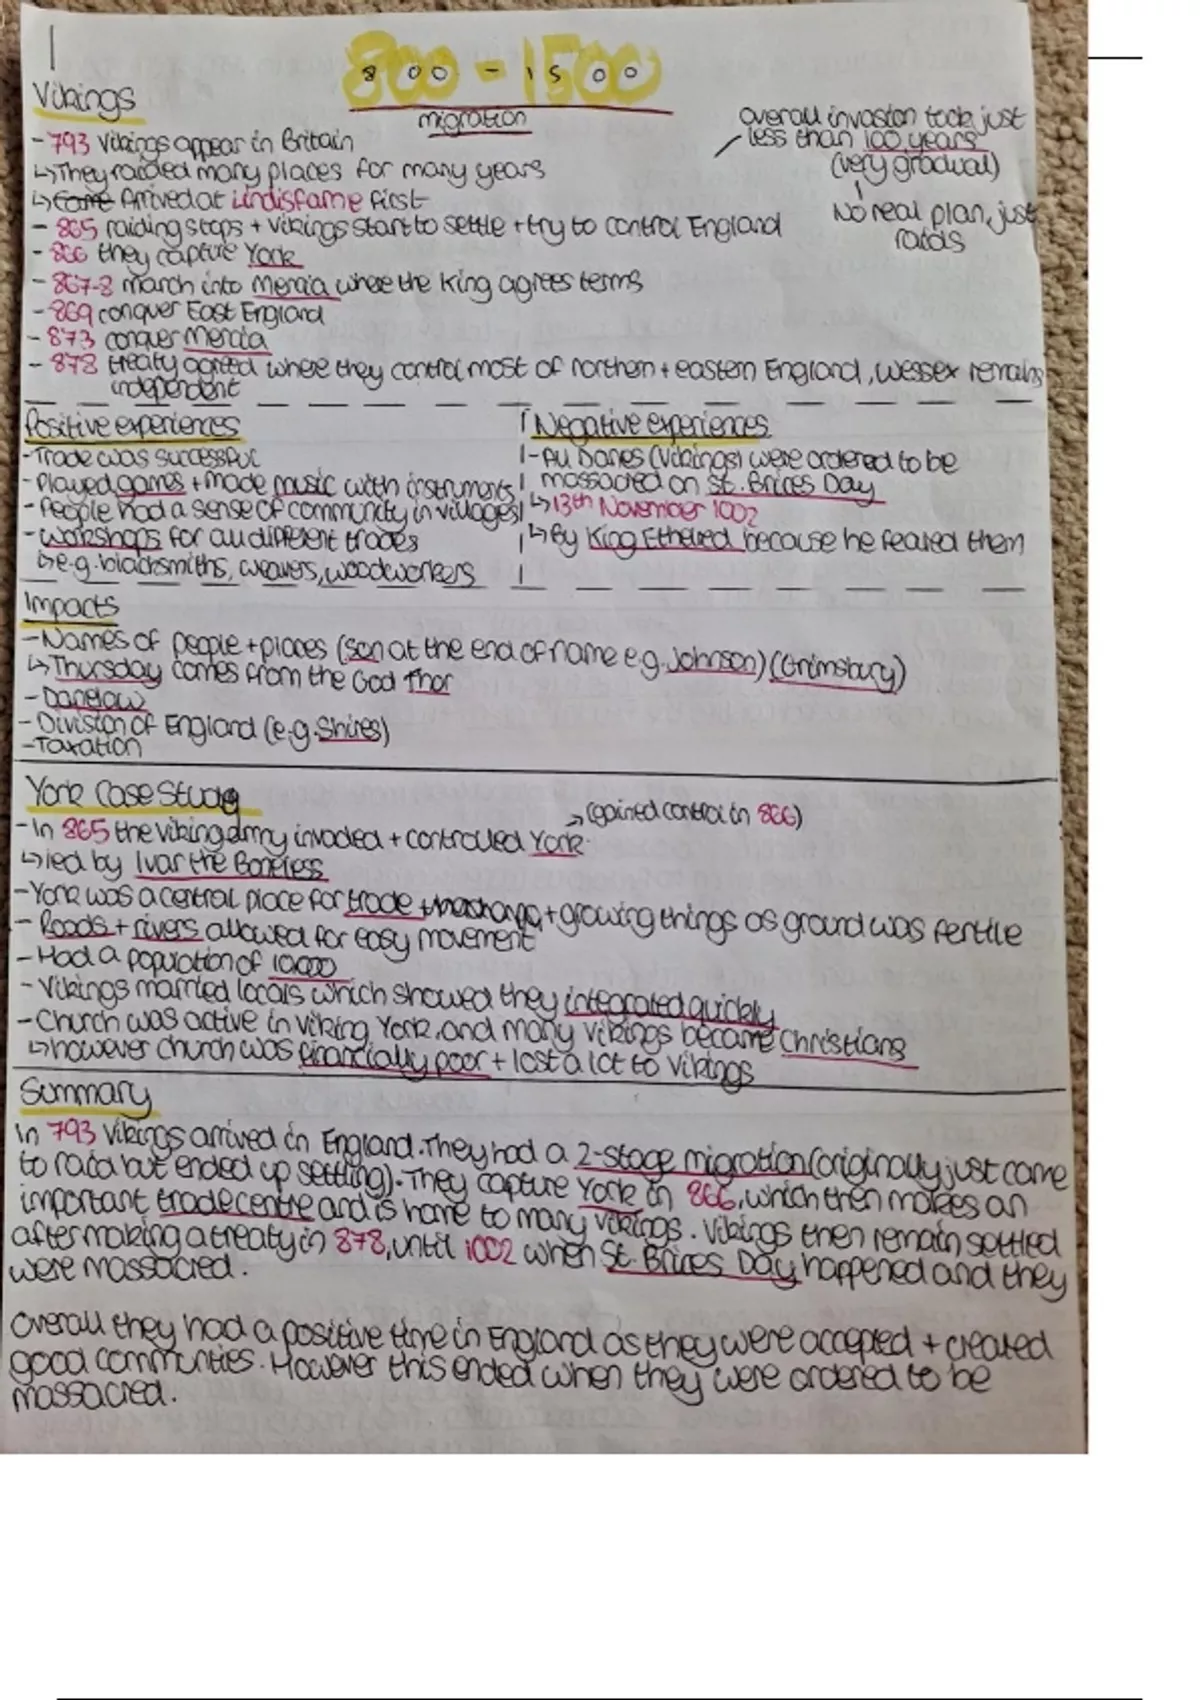 800 - 1500
migration
Vikings
- 793 Vikings appear in Britain
↳They raided many places for many years
↳Came Arrived at Lindisfarne first
- 865 raiding stops + Vikings start to settle + try to control England
- 866 they capture York
- 867-8 march into Mercia where the King agrees terms
- 869 conquer East England
- 873 conquer Mercia
- 878 treaty agreed where they control most of northern + eastern England, Wessex remains
independent
overall invasion took just
less than 100 years
(very gradual)
No real plan, just
raids
Positive experiences
- Trade was successful
- Played games + made music with instruments
- People had a sense of community in villages
- Workshops for all different trades
↳e.g. blacksmiths, weavers, woodworkers
Negative experiences
- All Danes (Vikings) were ordered to be
massacred on St. Brices Day
↳13th November 1002
↳By King Ethelred because he feared them
Impacts
- Names of people + places (son at the end of name e.g. Johnson) (Grimsbury)
↳Thursday comes from the God Thor
- Danelaw
- Division of England (e.g. Shires)
- Taxation
York Case Study
→ (gained control in 866)
- In 865 the Viking army invaded + controlled York
↳led by Ivar the Boneless
- York was a central place for trade + growing things as ground was fertile
- Roads + rivers allowed for easy movement
- Had a population of 10,000
- Vikings married locals which showed they integrated quickly
- Church was active in Viking York and many Vikings became Christians
↳however church was financially poor + lost a lot to Vikings
Summary
In 793 Vikings arrived in England. They had a 2-stage migration (originally just came
to raid but ended up settling). They capture York in 866, which then makes an
important trade centre and is home to many Vikings. Vikings then remain settled
after making a treaty in 878, until 1002 when St. Brices Day happened and they
were massacred.
Overall they had a positive time in England as they were accepted + created
good communties. However this ended when they were ordered to be
massacred.